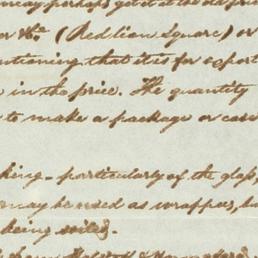 may perhaps get it at the old pri
or &c. (Red lion Square) or
ntioning that it is for export
in the price. The quantity
to make a package or case
king - particularly of the glass,
may be used as wrapper, bu
being